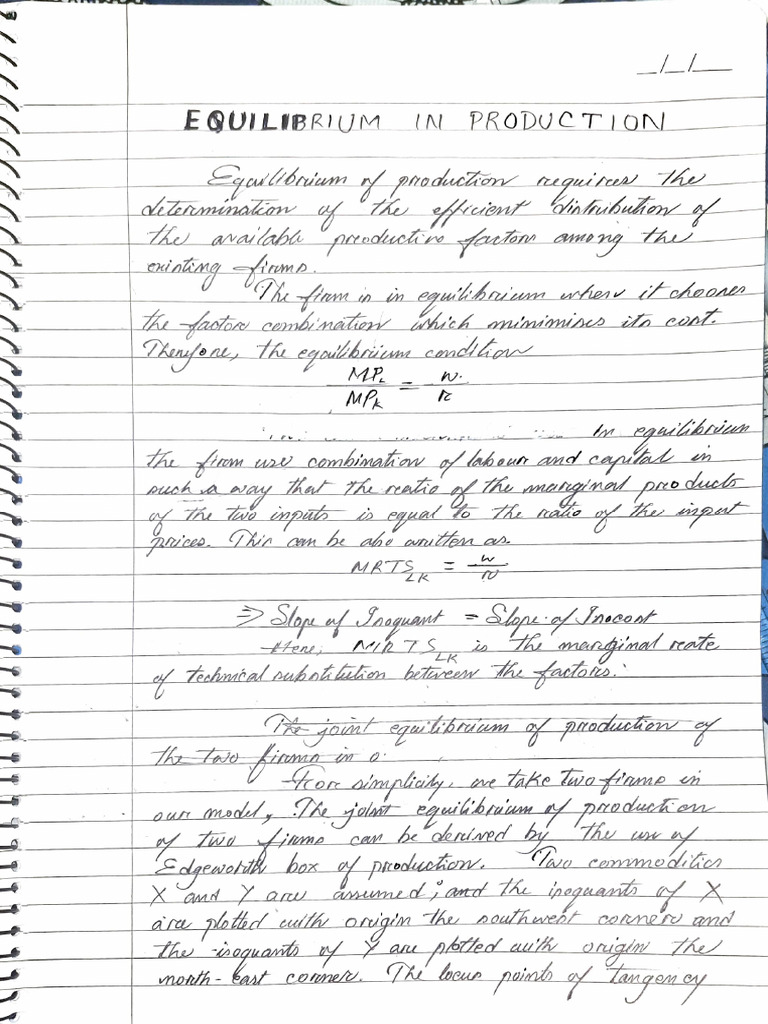 _/_/_
EQUILIBRIUM IN PRODUCTION
Equilibrium of production requires the
determination of the efficient distribution of
the available productive factors among the
existing firms.
The firm is in equilibrium when it chooses
the factor combination which minimises its cost.
Therefore, the equilibrium condition
MP_L / MP_K = w / r
In equilibrium
the firm use combination of labour and capital in
such a way that the ratio of the marginal products
of the two inputs is equal to the ratio of the input
prices. This can be also written as
MRTS_LK = w / r
⇒ Slope of Isoquant = Slope of Isocost
Here, MRTS_LK is the marginal rate
of technical substitution between the factors.
The joint equilibrium of production of
the two firms in o.
For simplicity, we take two firms in
our model, The joint equilibrium of production
of two firms can be derived by the use of
Edgeworth box of production. Two commodities
X and Y are assumed; and the isoquants of X
are plotted with origin the southwest corner and
the isoquants of Y are plotted with origin the
north-east corner. The locus points of tangency